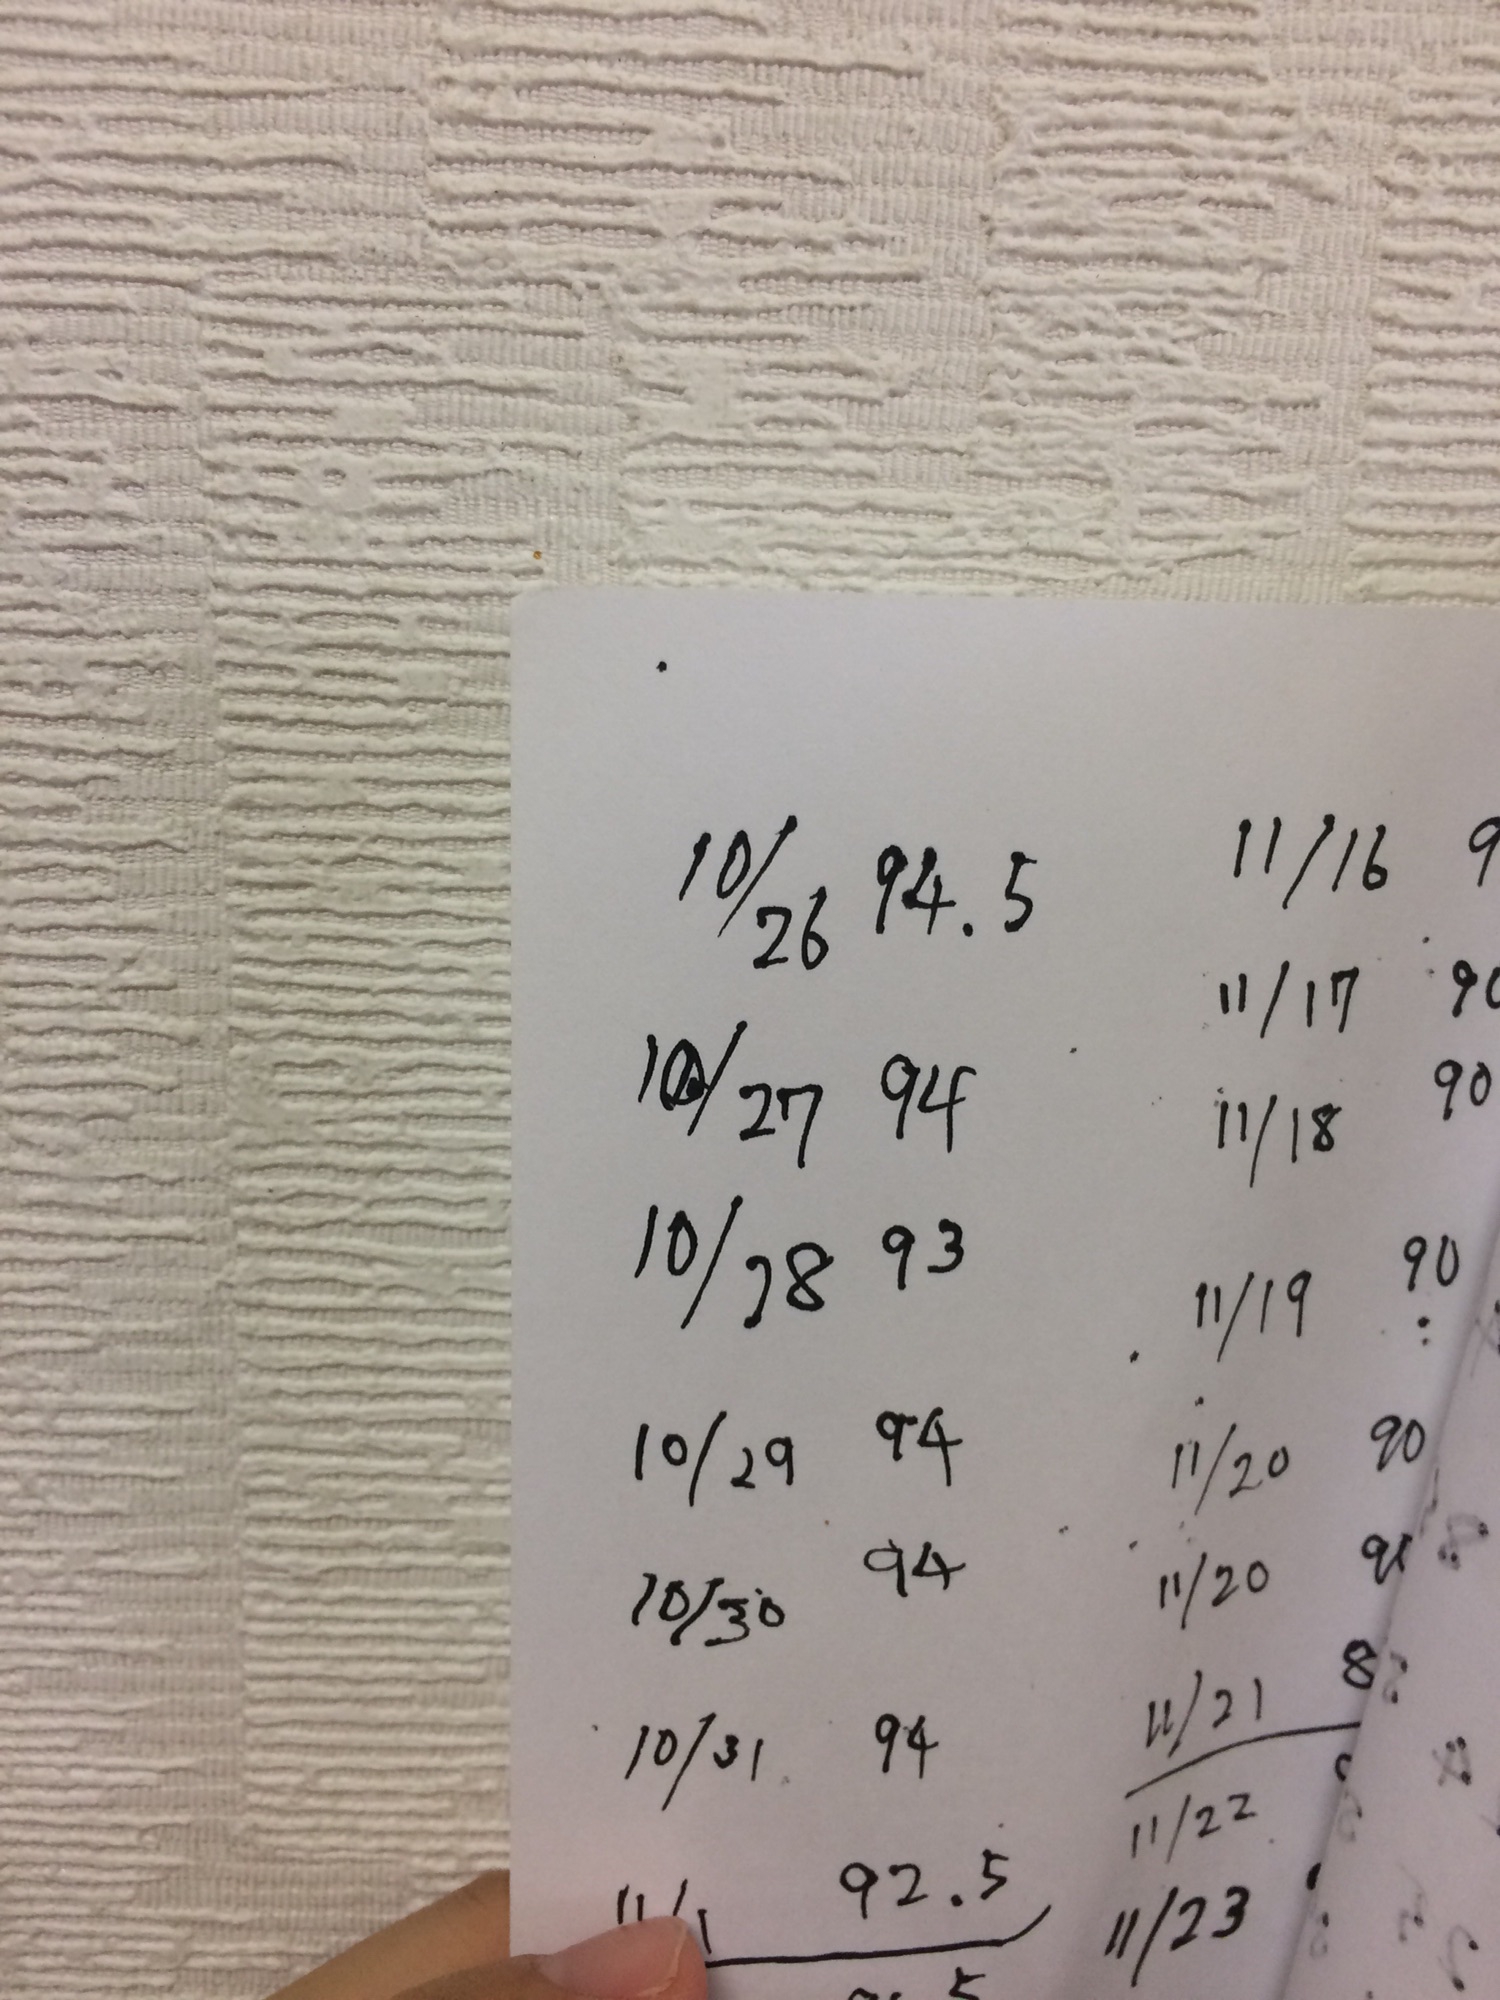 10/26 94.5
10/27 94
10/28 93
10/29 94
10/30 94
10/31 94
11/1 92.5
5
11/16 9
11/17 90
11/18 90
11/19 90
11/20 90
11/20
11/21 8
11/22
11/23